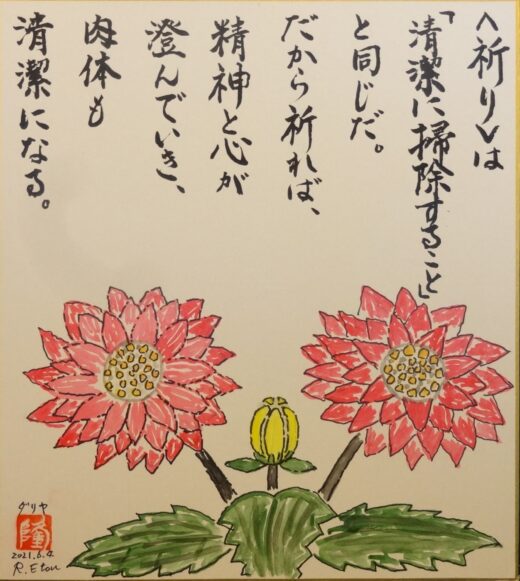 〈祈り〉は
「清潔に掃除すること」
と同じだ。
だから祈れば、
精神と心が
澄んでいき、
肉体も
清潔になる。
ダリヤ
隆
2021.6.4.
R.Etou